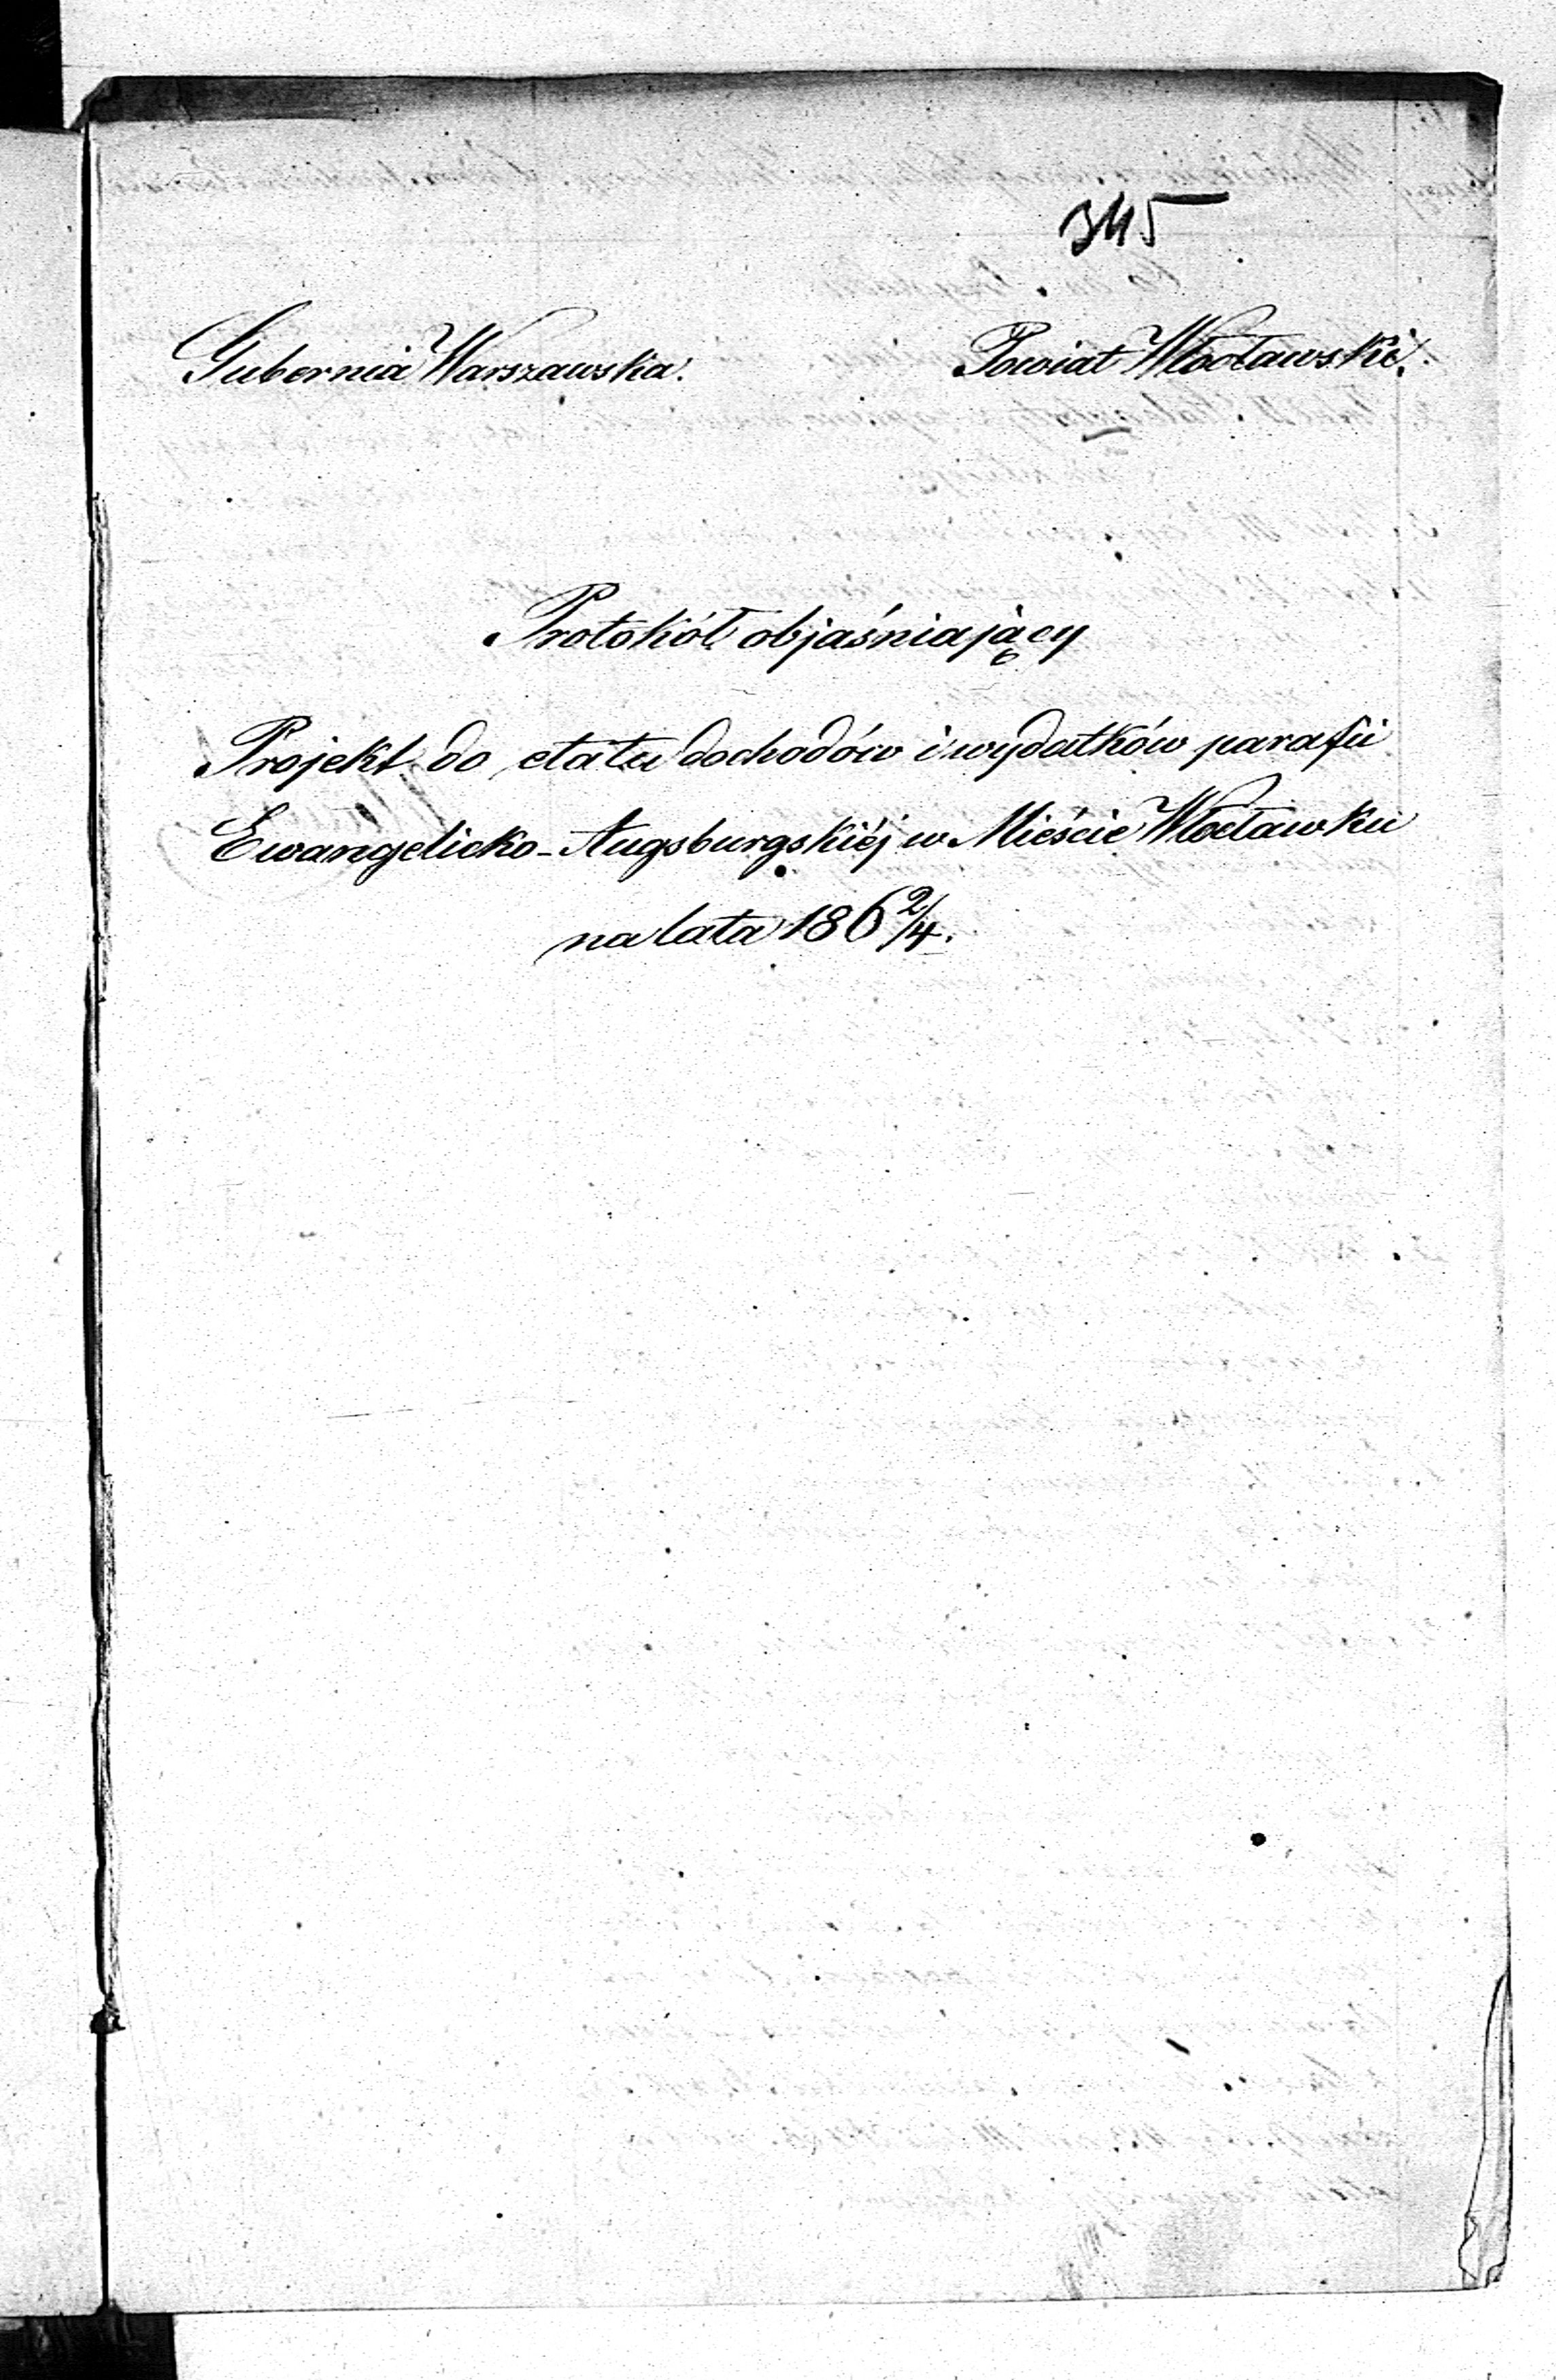 345
Gubernia Warszawska. Powiat Włocławski.
Protokół objaśniający
Projekt do etatu dochodów i wydatków parafii
Ewangelicko-Augsburgskiéj w Mieście Włocławku
na lata 186 2/4.